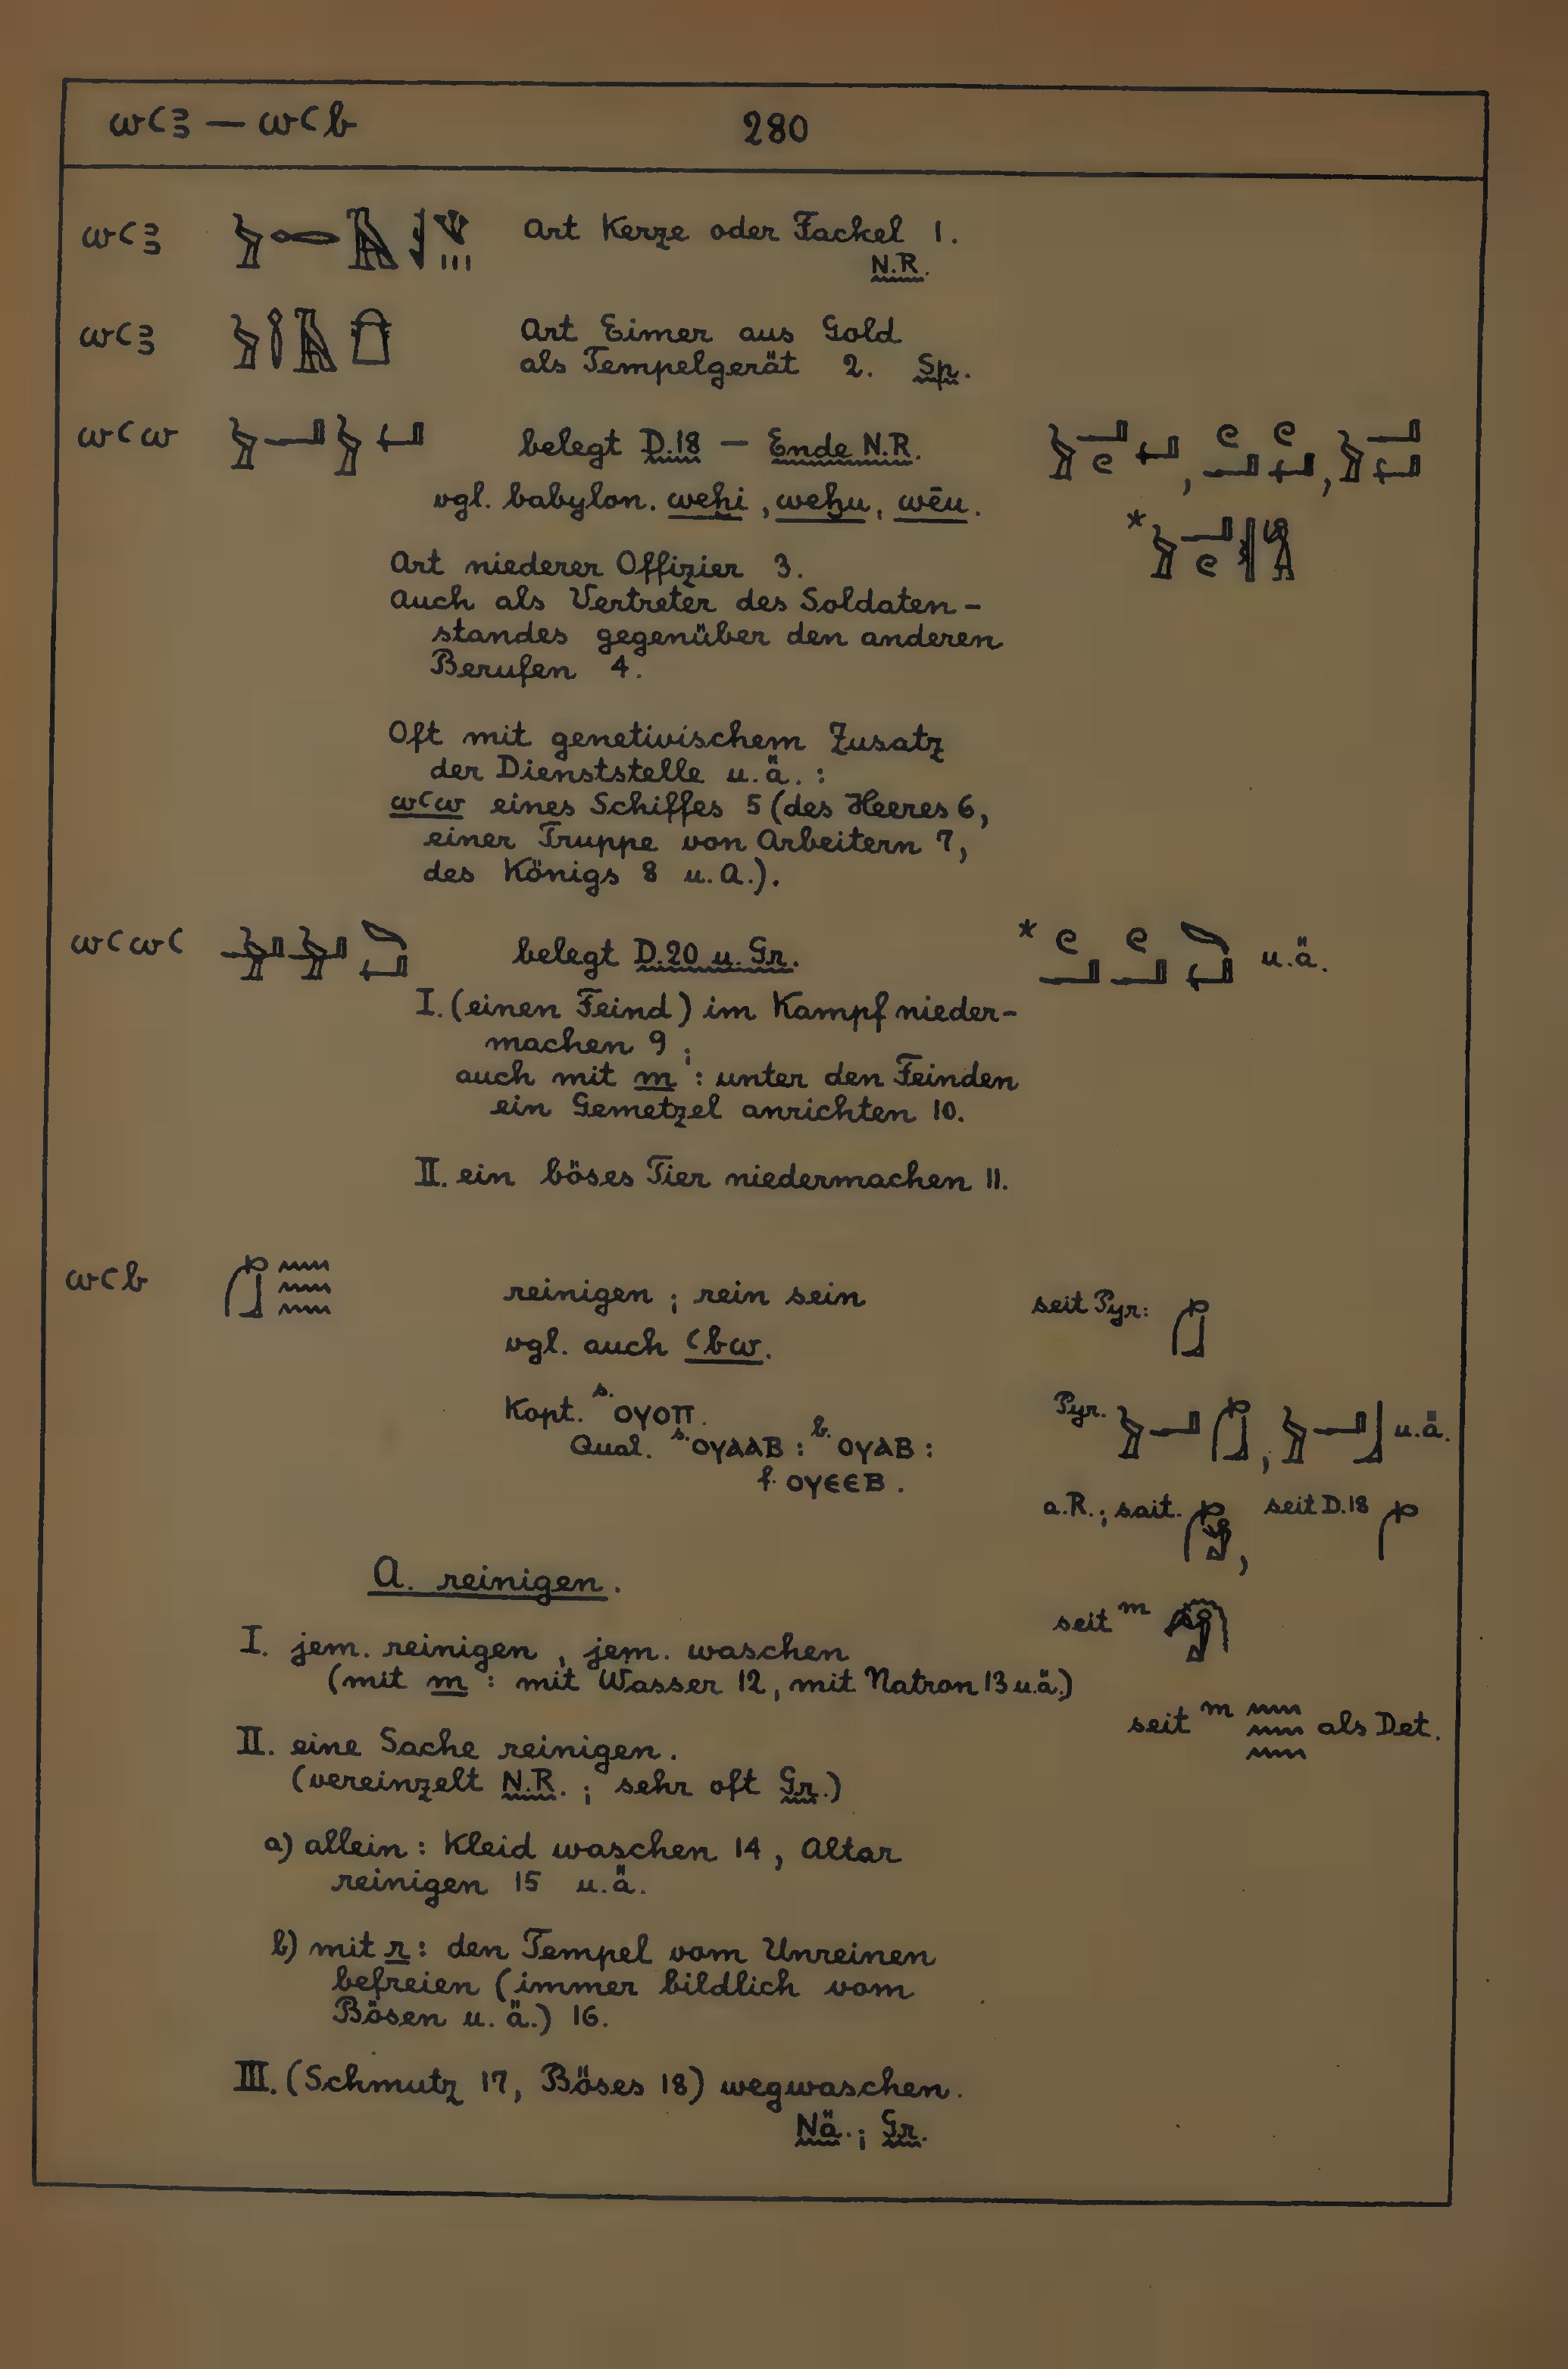 wꜥꜣ — wꜥb 280
wꜥꜣ Art Kerze oder Fackel 1.
N.R.
wꜥꜣ Art Eimer aus Gold
als Tempelgerät 2. Sp.
wꜥw belegt D.18 — Ende N.R.
vgl. babylon. weḫi, weḫu, wēu.
Art niederer Offizier 3.
auch als Vertreter des Soldaten-
standes gegenüber den anderen
Berufen 4.
Oft mit genetivischem Zusatz
der Dienststelle u.ä.:
wꜥw eines Schiffes 5 (des Heeres 6,
einer Truppe von Arbeitern 7,
des Königs 8 u.A.).
wꜥwꜥ belegt D.20 u. Gr. * u.ä.
I. (einen Feind) im Kampf nieder-
machen 9;
auch mit m: unter den Feinden
ein Gemetzel anrichten 10.
II. ein böses Tier niedermachen 11.
wꜥb reinigen; rein sein seit Pyr:
vgl. auch ꜥbw.
Kopt. s. ⲟⲩⲟⲡ. Pyr. u.ä.
Qual. s. ⲟⲩⲁⲁⲃ: b. ⲟⲩⲁⲃ:
f. ⲟⲩⲉⲉⲃ.
a.R.; sait. , seit D.18
A. reinigen.
seit m
I. jem. reinigen, jem. waschen
(mit m: mit Wasser 12, mit Natron 13 u.ä.)
seit m 𓈗 als Det.
II. eine Sache reinigen.
(vereinzelt N.R.; sehr oft Gr.)
a) allein: Kleid waschen 14, Altar
reinigen 15 u.ä.
b) mit r: den Tempel vom Unreinen
befreien (immer bildlich vom
Bösen u.ä.) 16.
III. (Schmutz 17, Böses 18) wegwaschen.
Nä.; Gr.